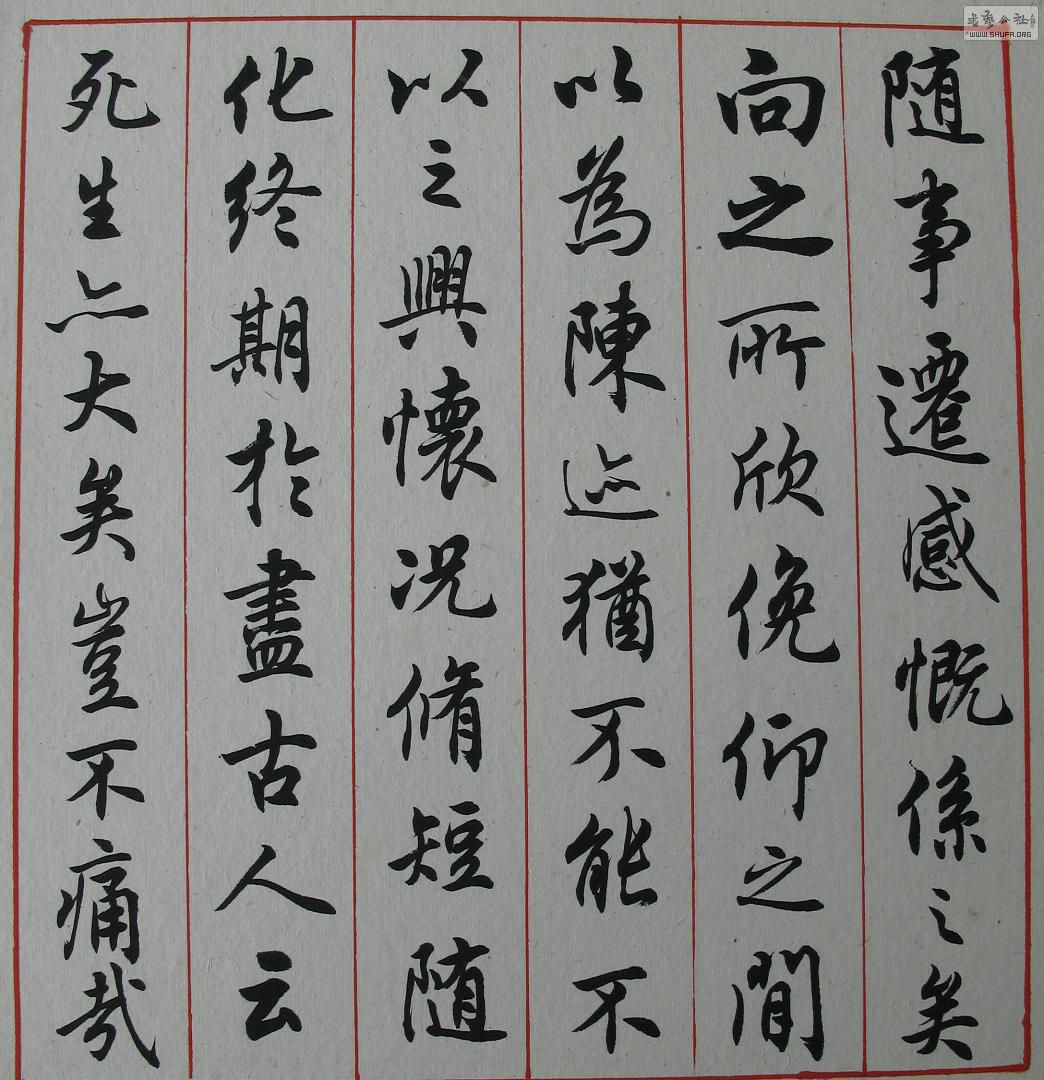 随事遷感慨係之矣
向之所欣俛仰之閒
以為陳迹猶不能不
以之興懷况脩短随
化終期於盡古人云
死生亦大矣豈不痛哉
书艺公社
WWW.SHUFA.ORG